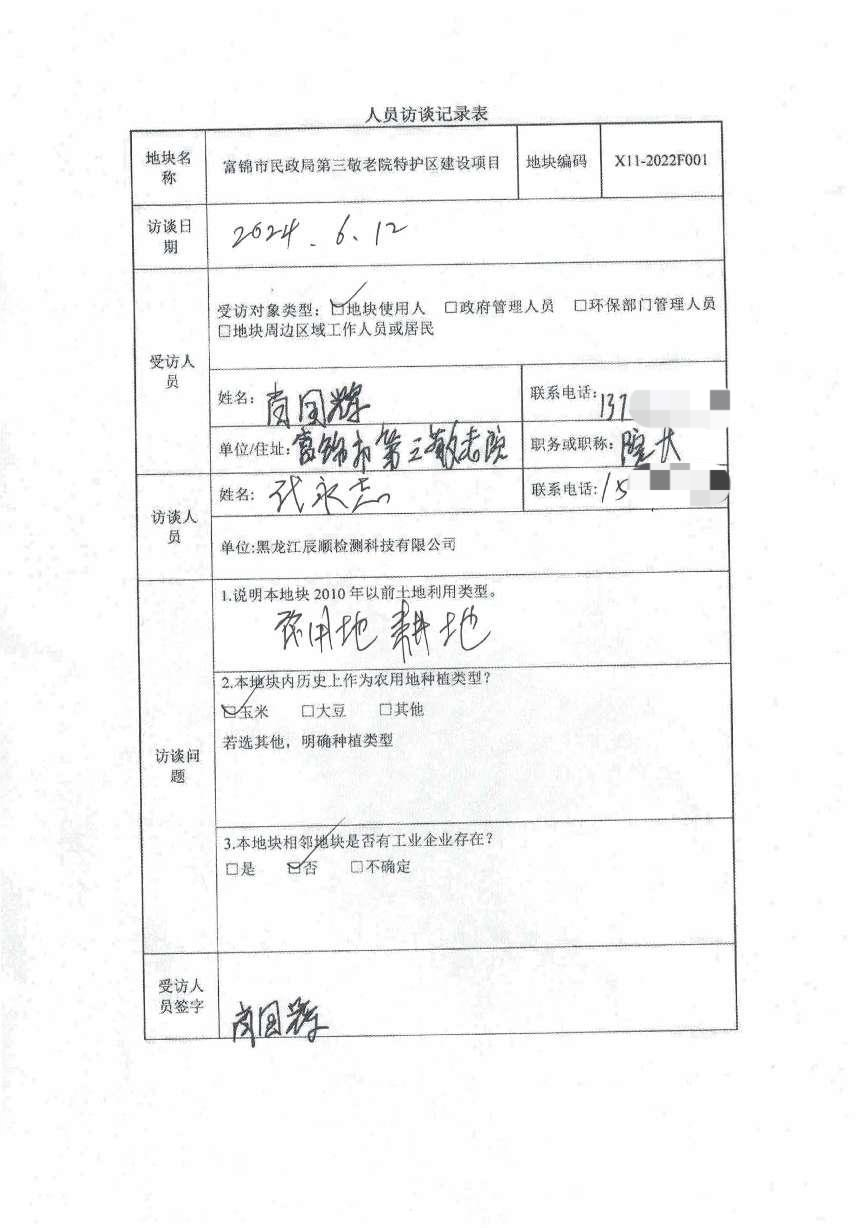 人员访谈记录表
地块名称 富锦市民政局第三敬老院特护区建设项目 地块编码 X11-2022F001
访谈日期 2024.6.12
受访人员
受访对象类型：☑地块使用人 □政府管理人员 □环保部门管理人员
□地块周边区域工作人员或居民
姓名：肖国辉 联系电话：137
单位/住址：富锦市第三敬老院 职务或职称：院长
访谈人员
姓名：代永志 联系电话：15
单位:黑龙江辰顺检测科技有限公司
访谈问题
1.说明本地块 2010 年以前土地利用类型。
农用地 耕地
2.本地块内历史上作为农用地种植类型？
☑玉米 □大豆 □其他
若选其他，明确种植类型
3.本地块相邻地块是否有工业企业存在？
□是 ☑否 □不确定
受访人员签字 肖国辉